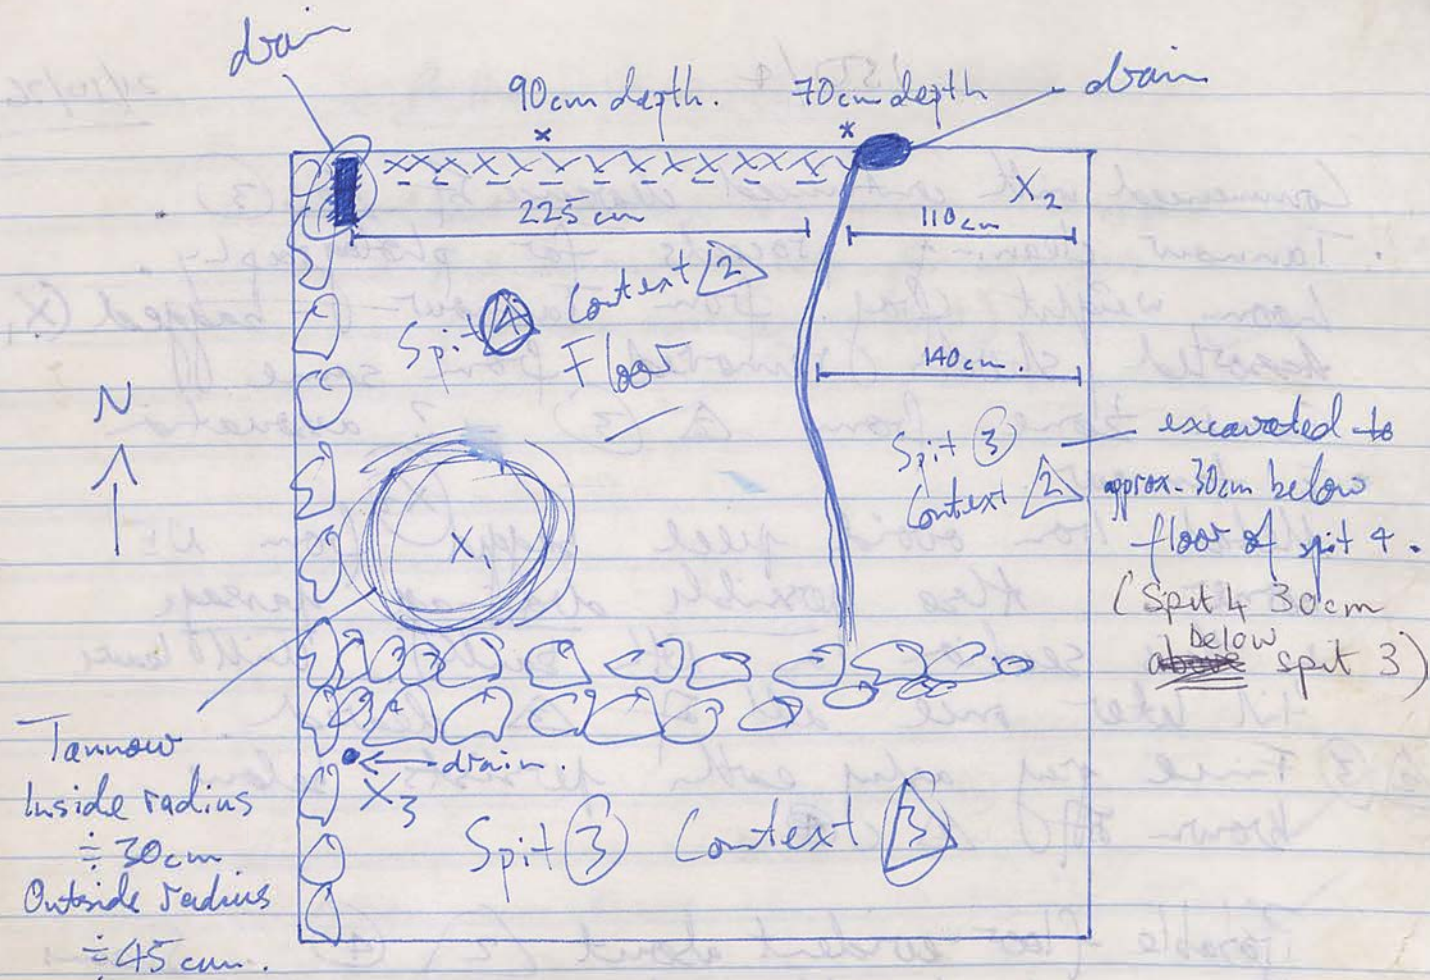 drain
90cm depth.
70cm depth
drain
X2
225cm
110cm
Spit 4 Context 2
Floor
140cm.
N
Spit 3
Context 2
excavated to
approx. 30cm below
floor of spit 4.
(Spit 4 30cm
below
above spit 3)
X1
Tannow
Inside radius
÷ 30cm
Outside radius
÷ 45 cm.
drain.
X3
Spit 3 Context 3